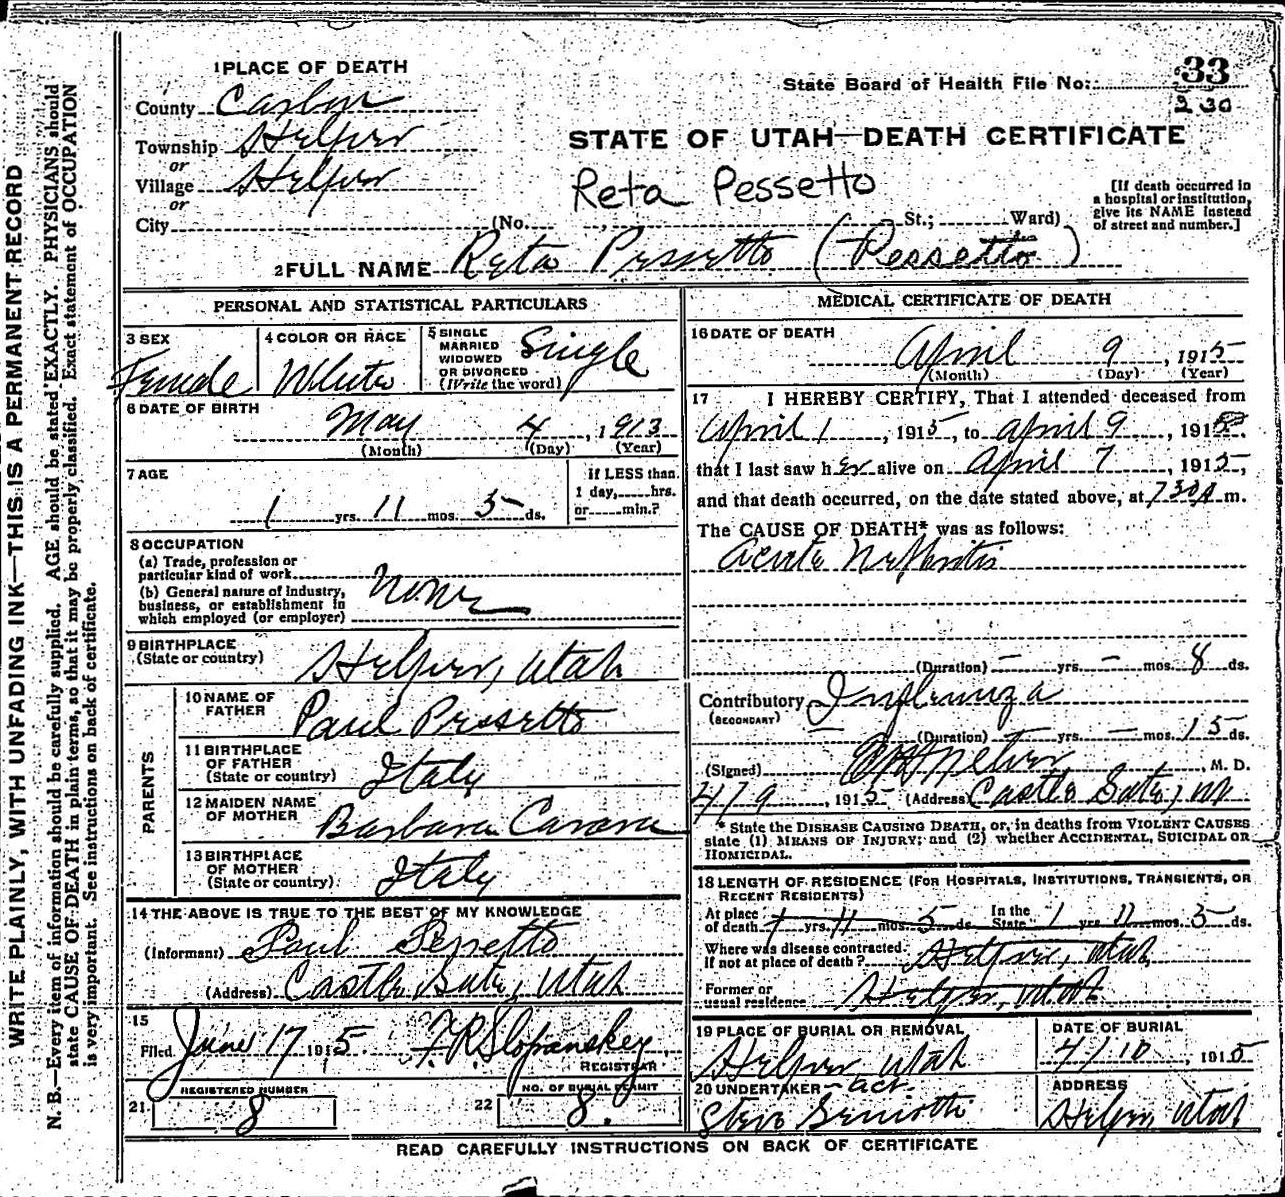 WRITE PLAINLY, WITH UNFADING INK—THIS IS A PERMANENT RECORD
N. B.—Every item of information should be carefully supplied. AGE should be stated EXACTLY. PHYSICIANS should
state CAUSE OF DEATH in plain terms, so that it may be properly classified. Exact statement of OCCUPATION
is very important. See instructions on back of certificate.
1 PLACE OF DEATH
County Carbon
Township Helper
or
Village Helper
or
City
State Board of Health File No. 33
230
STATE OF UTAH—DEATH CERTIFICATE
Reta Pessetto
(No. St.; Ward)
[If death occurred in
a hospital or institution,
give its NAME instead
of street and number.]
2 FULL NAME Reta Pessetto (Pessetto)
PERSONAL AND STATISTICAL PARTICULARS
3 SEX
Female
4 COLOR OR RACE
White
5 SINGLE
MARRIED
WIDOWED
OR DIVORCED
(Write the word)
Single
6 DATE OF BIRTH
May 4, 1913
(Month) (Day) (Year)
7 AGE
1 yrs. 11 mos. 5 ds.
if LESS than
1 day, hrs.
or min.?
8 OCCUPATION
(a) Trade, profession or
particular kind of work
(b) General nature of industry,
business, or establishment in
which employed (or employer)
none
9 BIRTHPLACE
(State or country)
Helper, Utah
PARENTS
10 NAME OF
FATHER
Paul Pessetto
11 BIRTHPLACE
OF FATHER
(State or country)
Italy
12 MAIDEN NAME
OF MOTHER
Barbara
13 BIRTHPLACE
OF MOTHER
(State or country)
Italy
14 THE ABOVE IS TRUE TO THE BEST OF MY KNOWLEDGE
(Informant) Paul Pessetto
(Address) Castle Gate, Utah
15
Filed June 17 1915 F R Slopanskey
REGISTRAR
21 REGISTERED NUMBER
8
22 NO. OF BURIAL PERMIT
8.
MEDICAL CERTIFICATE OF DEATH
16 DATE OF DEATH
April 9, 1915
(Month) (Day) (Year)
17 I HEREBY CERTIFY, That I attended deceased from
April 1, 1915, to April 9, 1915
that I last saw her alive on April 7, 1915,
and that death occurred, on the date stated above, at 730A m.
The CAUSE OF DEATH* was as follows:
Acute Nephritis
(Duration) — yrs. — mos. 8 ds.
Contributory Influenza
(SECONDARY)
(Duration) — yrs. — mos. 15 ds.
(Signed) M. D.
4/9, 1915 (Address) Castle Gate, Ut
* State the DISEASE CAUSING DEATH, or, in deaths from VIOLENT CAUSES
state (1) MEANS OF INJURY; and (2) whether ACCIDENTAL, SUICIDAL OR
HOMICIDAL.
18 LENGTH OF RESIDENCE (FOR HOSPITALS, INSTITUTIONS, TRANSIENTS, OR
RECENT RESIDENTS)
At place
of death 1 yrs. 11 mos. 5 ds. In the
State 1 yrs. 11 mos. 5 ds.
Where was disease contracted
If not at place of death? Helper, Utah
Former or
usual residence Helper, Utah
19 PLACE OF BURIAL OR REMOVAL
Helper, Utah
DATE OF BURIAL
4/10, 1915
20 UNDERTAKER—act.
ADDRESS
Helper, Utah
READ CAREFULLY INSTRUCTIONS ON BACK OF CERTIFICATE